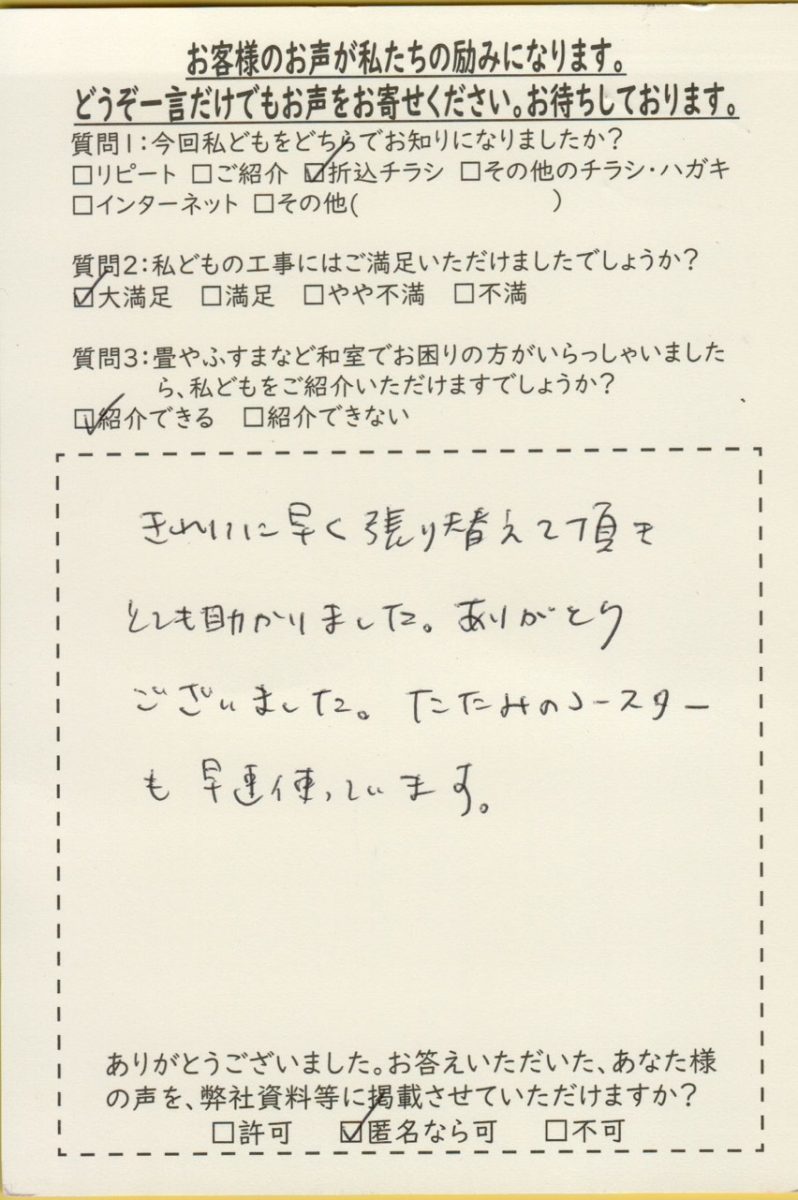 お客様のお声が私たちの励みになります。
どうぞ一言だけでもお声をお寄せください。お待ちしております。
質問1:今回私どもをどちらでお知りになりましたか?
□リピート □ご紹介 ☑折込チラシ □その他のチラシ・ハガキ
□インターネット □その他( )
質問2:私どもの工事にはご満足いただけましたでしょうか?
☑大満足 □満足 □やや不満 □不満
質問3:畳やふすまなど和室でお困りの方がいらっしゃいました
ら、私どもをご紹介いただけますでしょうか?
☑紹介できる □紹介できない
きれいに早く張り替えて頂き
とても助かりました。ありがとう
ございました。たたみのコースター
も早速使っています。
ありがとうございました。お答えいただいた、あなた様
の声を、弊社資料等に掲載させていただけますか?
□許可 ☑匿名なら可 □不可